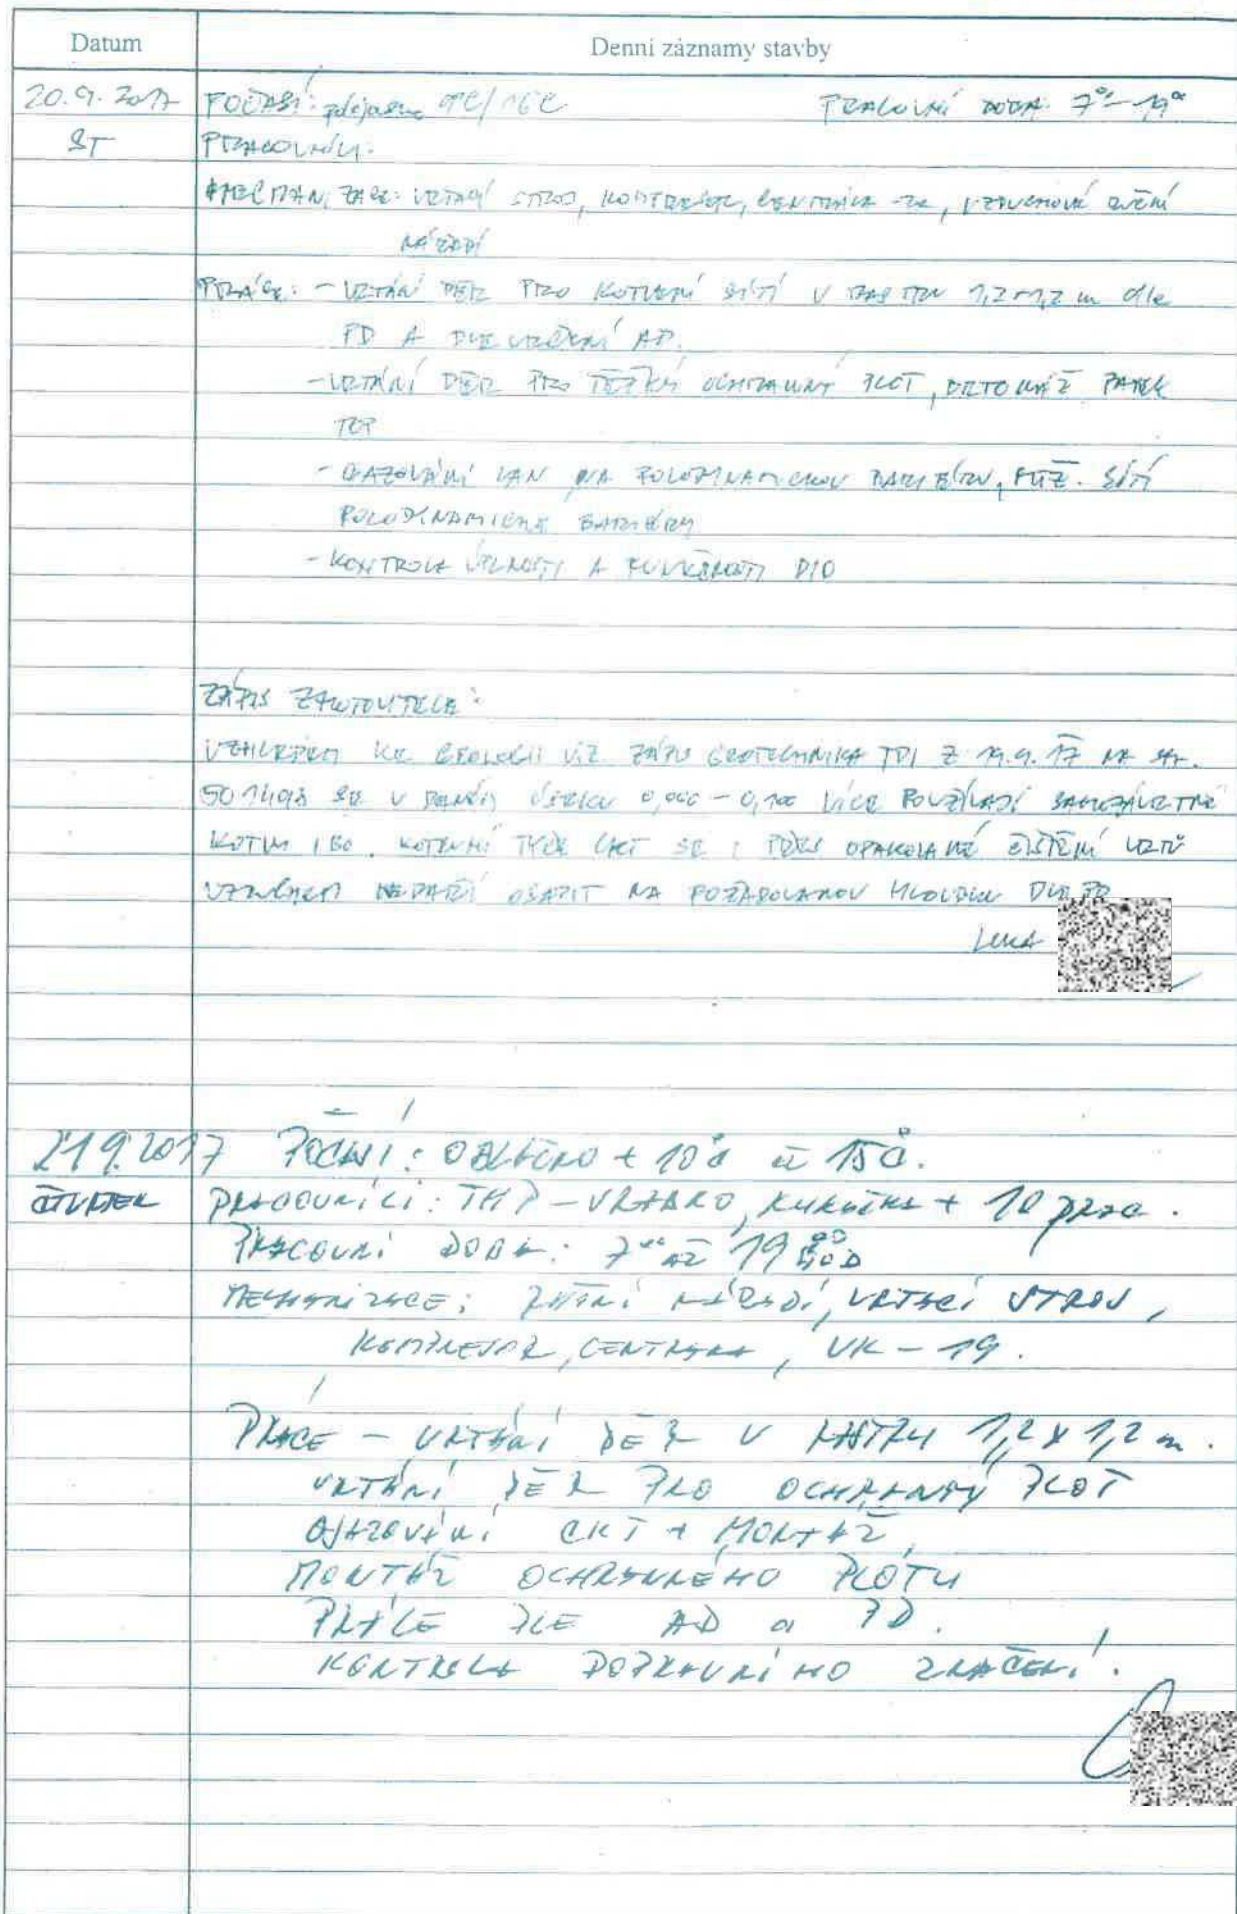 Datum Denní záznamy stavby
20.9.2017 POČASÍ: polojasno 9°C/16°C PRACOVNÍ DOBA: 7⁰⁰-19⁰⁰
ST PRACOVNÍCI:
VRTACÍ STROJ, KOMPRESOR, CENTRÁLA, VZDUCHOVÉ RUČNÍ
NÁŘADÍ
PRÁCE: - VRTÁNÍ DĚR PRO KOTVENÍ SÍTÍ V RASTRU 1,2x1,2 m dle
PD A DLE URČENÍ AD.
- VRTÁNÍ DĚR PRO TĚŽKÝ OCHRANNÝ PLOT, PATEK
TOP
- OSAZOVÁNÍ LAN NA POLODYNAMICKOU BARIÉRU, SÍTÍ
POLODYNAMICKÉ BARIÉRY
- KONTROLA ÚPLNOSTI A FUNKČNOSTI DIO
ZÁPIS ZHOTOVITELE:
VZHLEDEM KE GEOLOGII VIZ. ZÁPIS GEOTECHNIKA TDI Z 19.9.17 NA STR.
5014098 SE V DANÉM ÚSEKU 0,000 - 0,100 VÍCE POUŽÍVAJÍ SAMOZÁVRTNÉ
KOTVY IBO. KOTEVNÍ TYČE CKT SE I PŘES OPAKOVANÉ ČIŠTĚNÍ VRTŮ
VZDUCHEM NEDAŘÍ OSADIT NA POŽADOVANOU HLOUBKU DLE PD
21.9.2017 POČASÍ: OBLAČNO + 10°C až 15°C.
ČTVRTEK PRACOVNÍCI: THP - VRÁBKO, KUKUČKA + 10 prac.
PRACOVNÍ DOBA: 7⁰⁰ AŽ 19⁰⁰ HOD
MECHANIZACE: RUČNÍ NÁŘADÍ, VRTACÍ STROJ,
KOMPRESOR, CENTRÁLA, VK - 19.
PRÁCE - VRTÁNÍ DĚR V RASTRU 1,2 x 1,2 m.
VRTÁNÍ DĚR PRO OCHRANNÝ PLOT
OSAZOVÁNÍ CKT + MONTÁŽ,
MONTÁŽ OCHRANNÉHO PLOTU
PRÁCE DLE AD a PD.
KONTROLA DOPRAVNÍHO ZNAČENÍ.